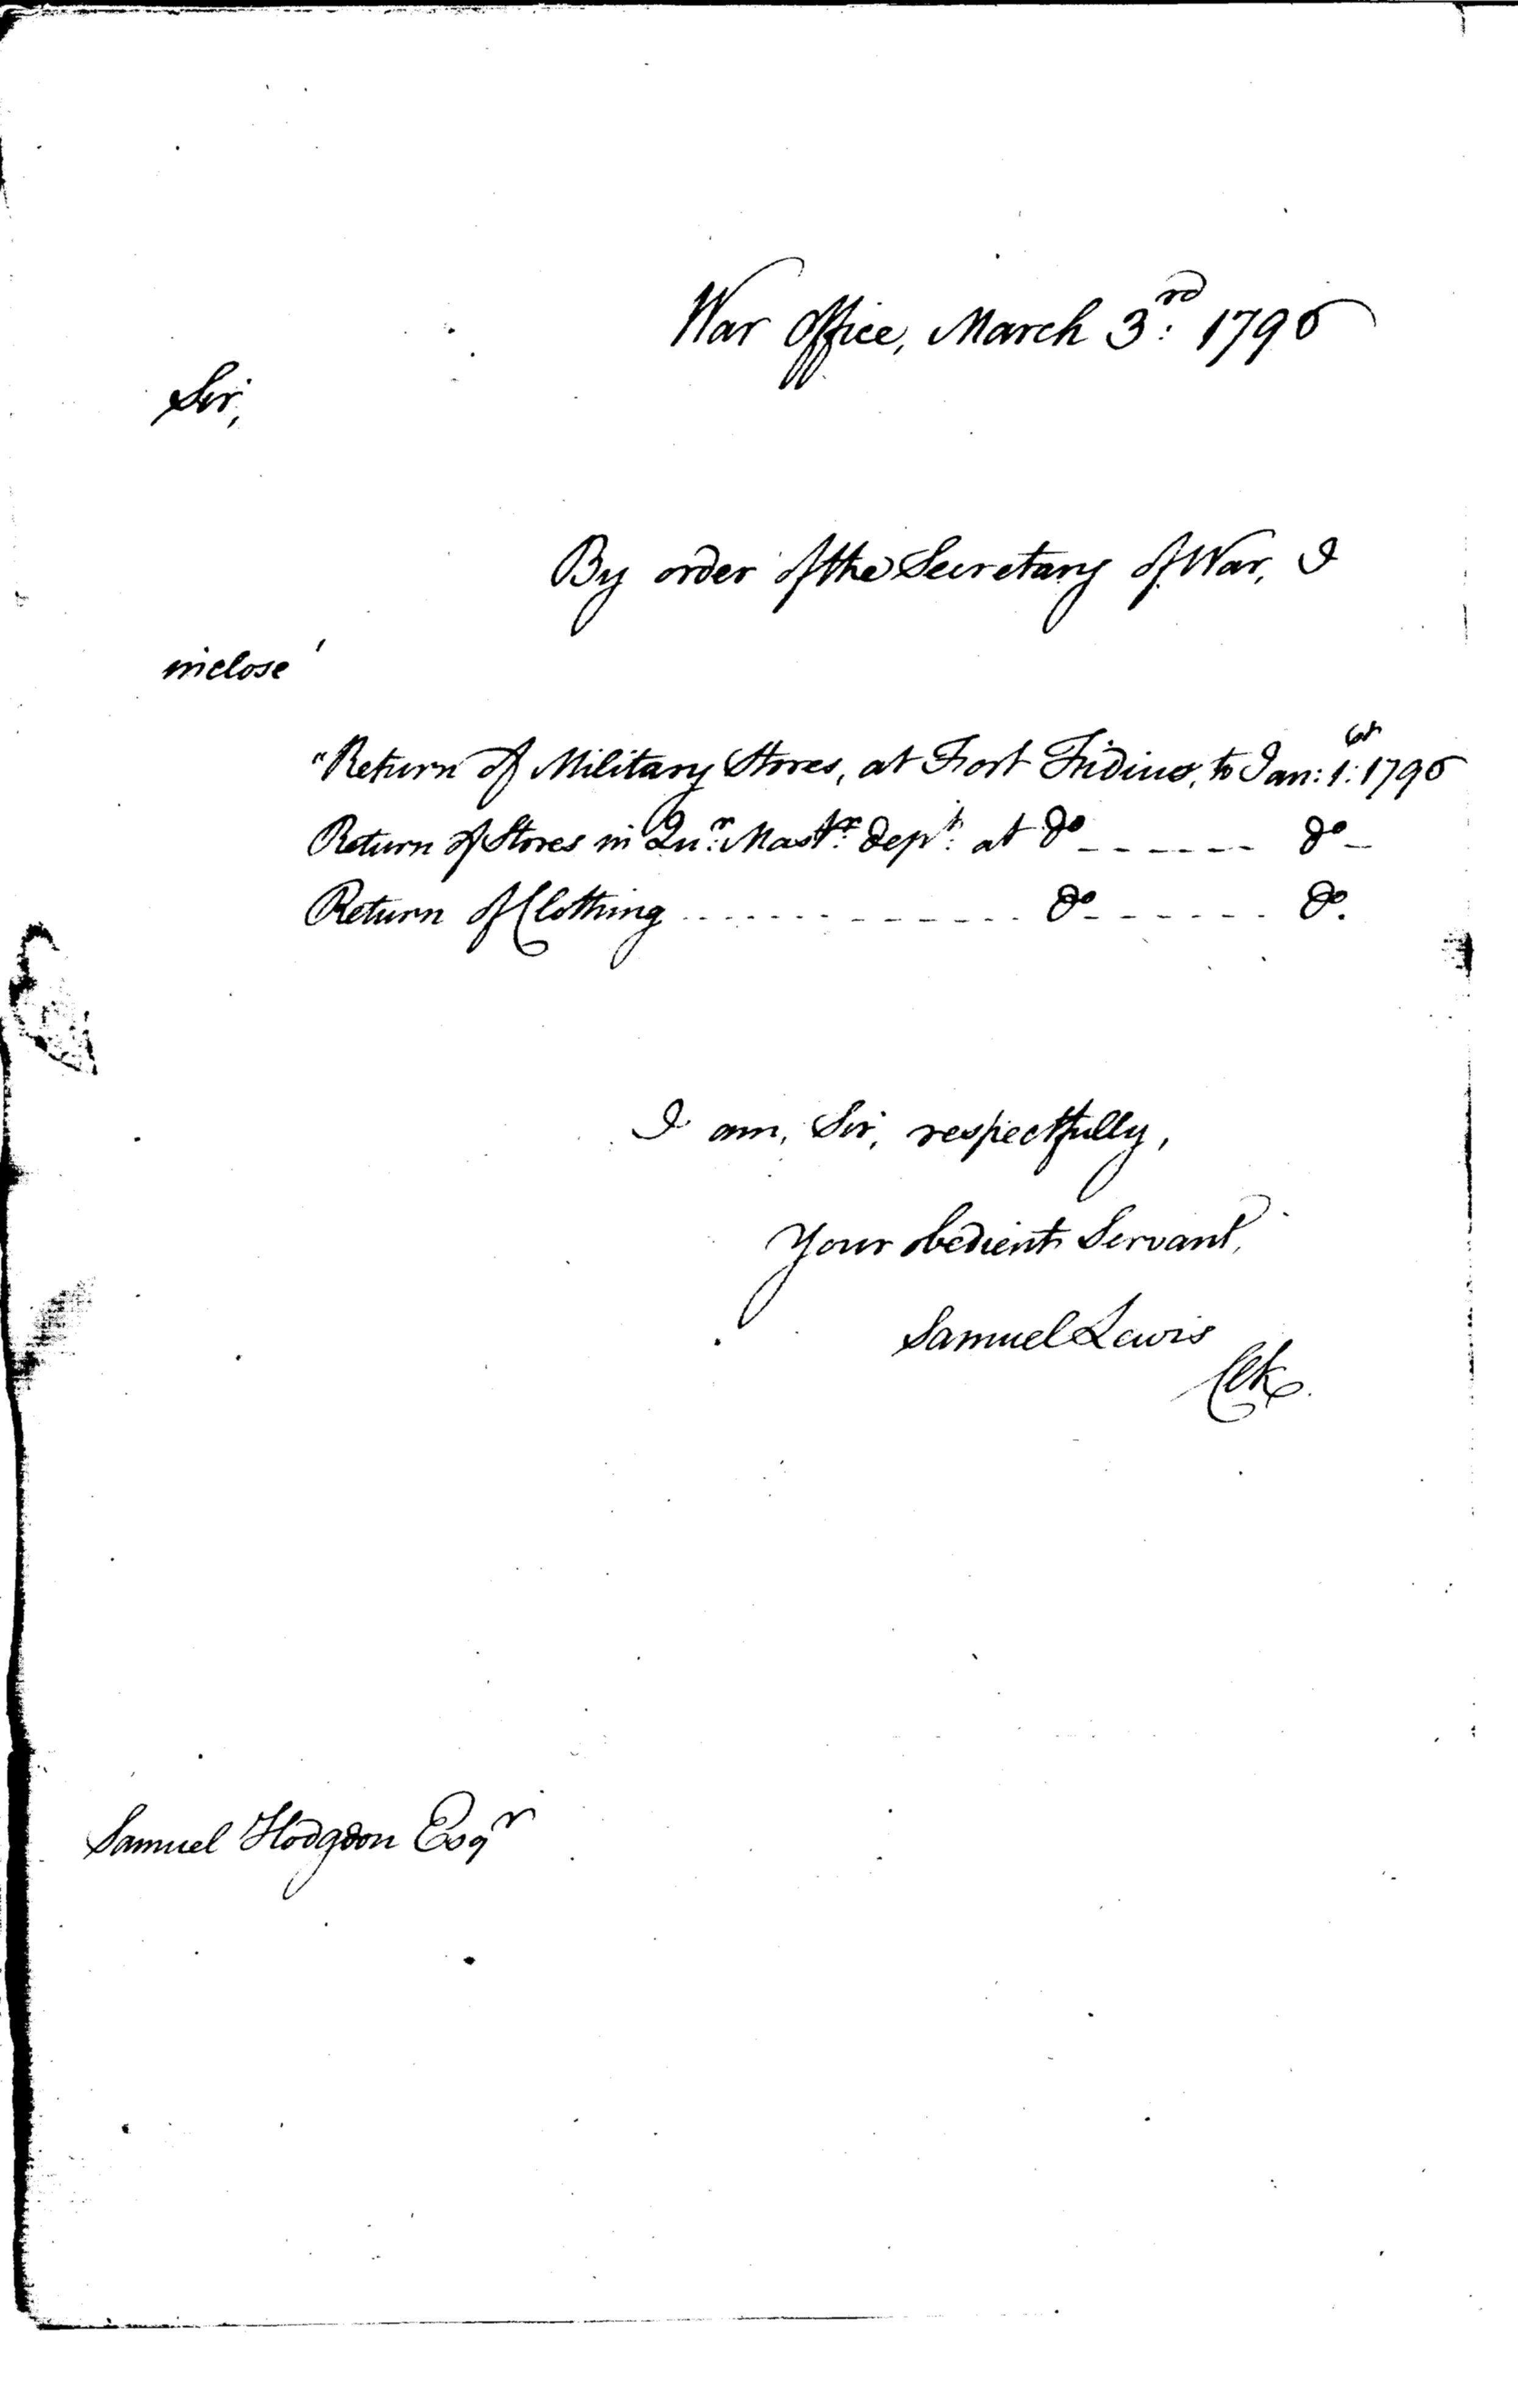 War Office, March 3rd: 1796
Sir,
By order of the Secretary of War, I
inclose
"Return of Military Stores, at Fort Fidius, to Jan: 1st: 1796
Return of Stores in Qur: Mastr: dept: at do ------ do -
Return of Clothing .............. do ------ do.
I am, Sir, respectfully,
Your obedient Servant,
Samuel Lewis
Clk.
Samuel Hodgdon Esqr